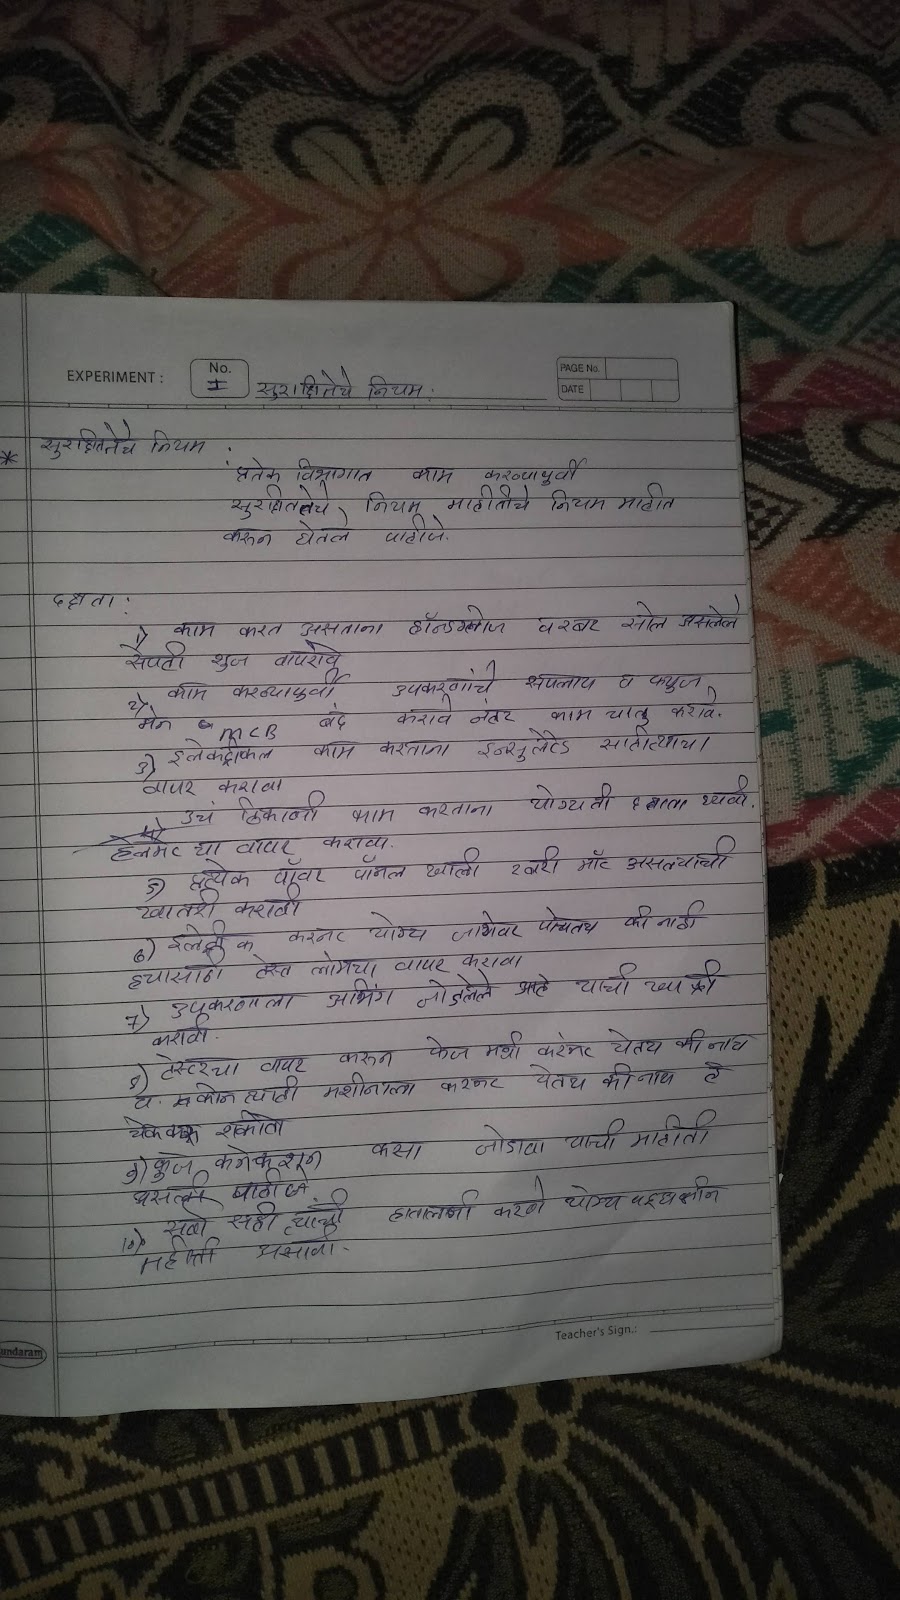 EXPERIMENT :
No.
I
सुरक्षितेचे नियम.
PAGE No.
DATE
* सुरक्षिततेचे नियम :
प्रतेक विभागात काम करन्यापुर्वी
सुरक्षिततेचे नियम माहीतीचे नियम माहीत
करून घेतले पाहीजे.
दक्षता :
1) काम करत असताना हॅन्डग्लोज व रबर सोल असलेले
सेपटी शुज वापरावे
2) काम करन्यापुर्वी उपकरणांचे सप्लाय व फ्युज
मेन MCB बंद करावे नंतर काम चालु करावे.
3) इलेक्ट्रीकल काम करताना इन्सुलेटेड साहीत्याचा
वापर करावा
4) उचं ठिकानी काम करताना योग्यती दक्षता घ्यावी.
हेलमेट चा वापर करावा.
5) प्रत्येक पॉवर पॅनल खाली रबरी मॅट असल्याची
खातरी करावी
6) करन्ट योग्य जागेवर पोचतय की नाही
ह्यासाठी टेस्ट लॅम्पचा वापर करावा
7) उपकरणाला अर्थिंग जोडलेले आहे याची
करावी.
8) टेस्टरचा वापर करून फेज मधी करंन्ट येतय की नाय
व कोनत्याही मशीनाला करन्ट येतय की नाय हे
चेक करू शकीतो
9) फ्युज कनेकशन कसा जोडावा याची माहीती
असली पाहीजे
10) हाताळनी करने योग्य
माहीती असावी.
Teacher's Sign.:
undaram